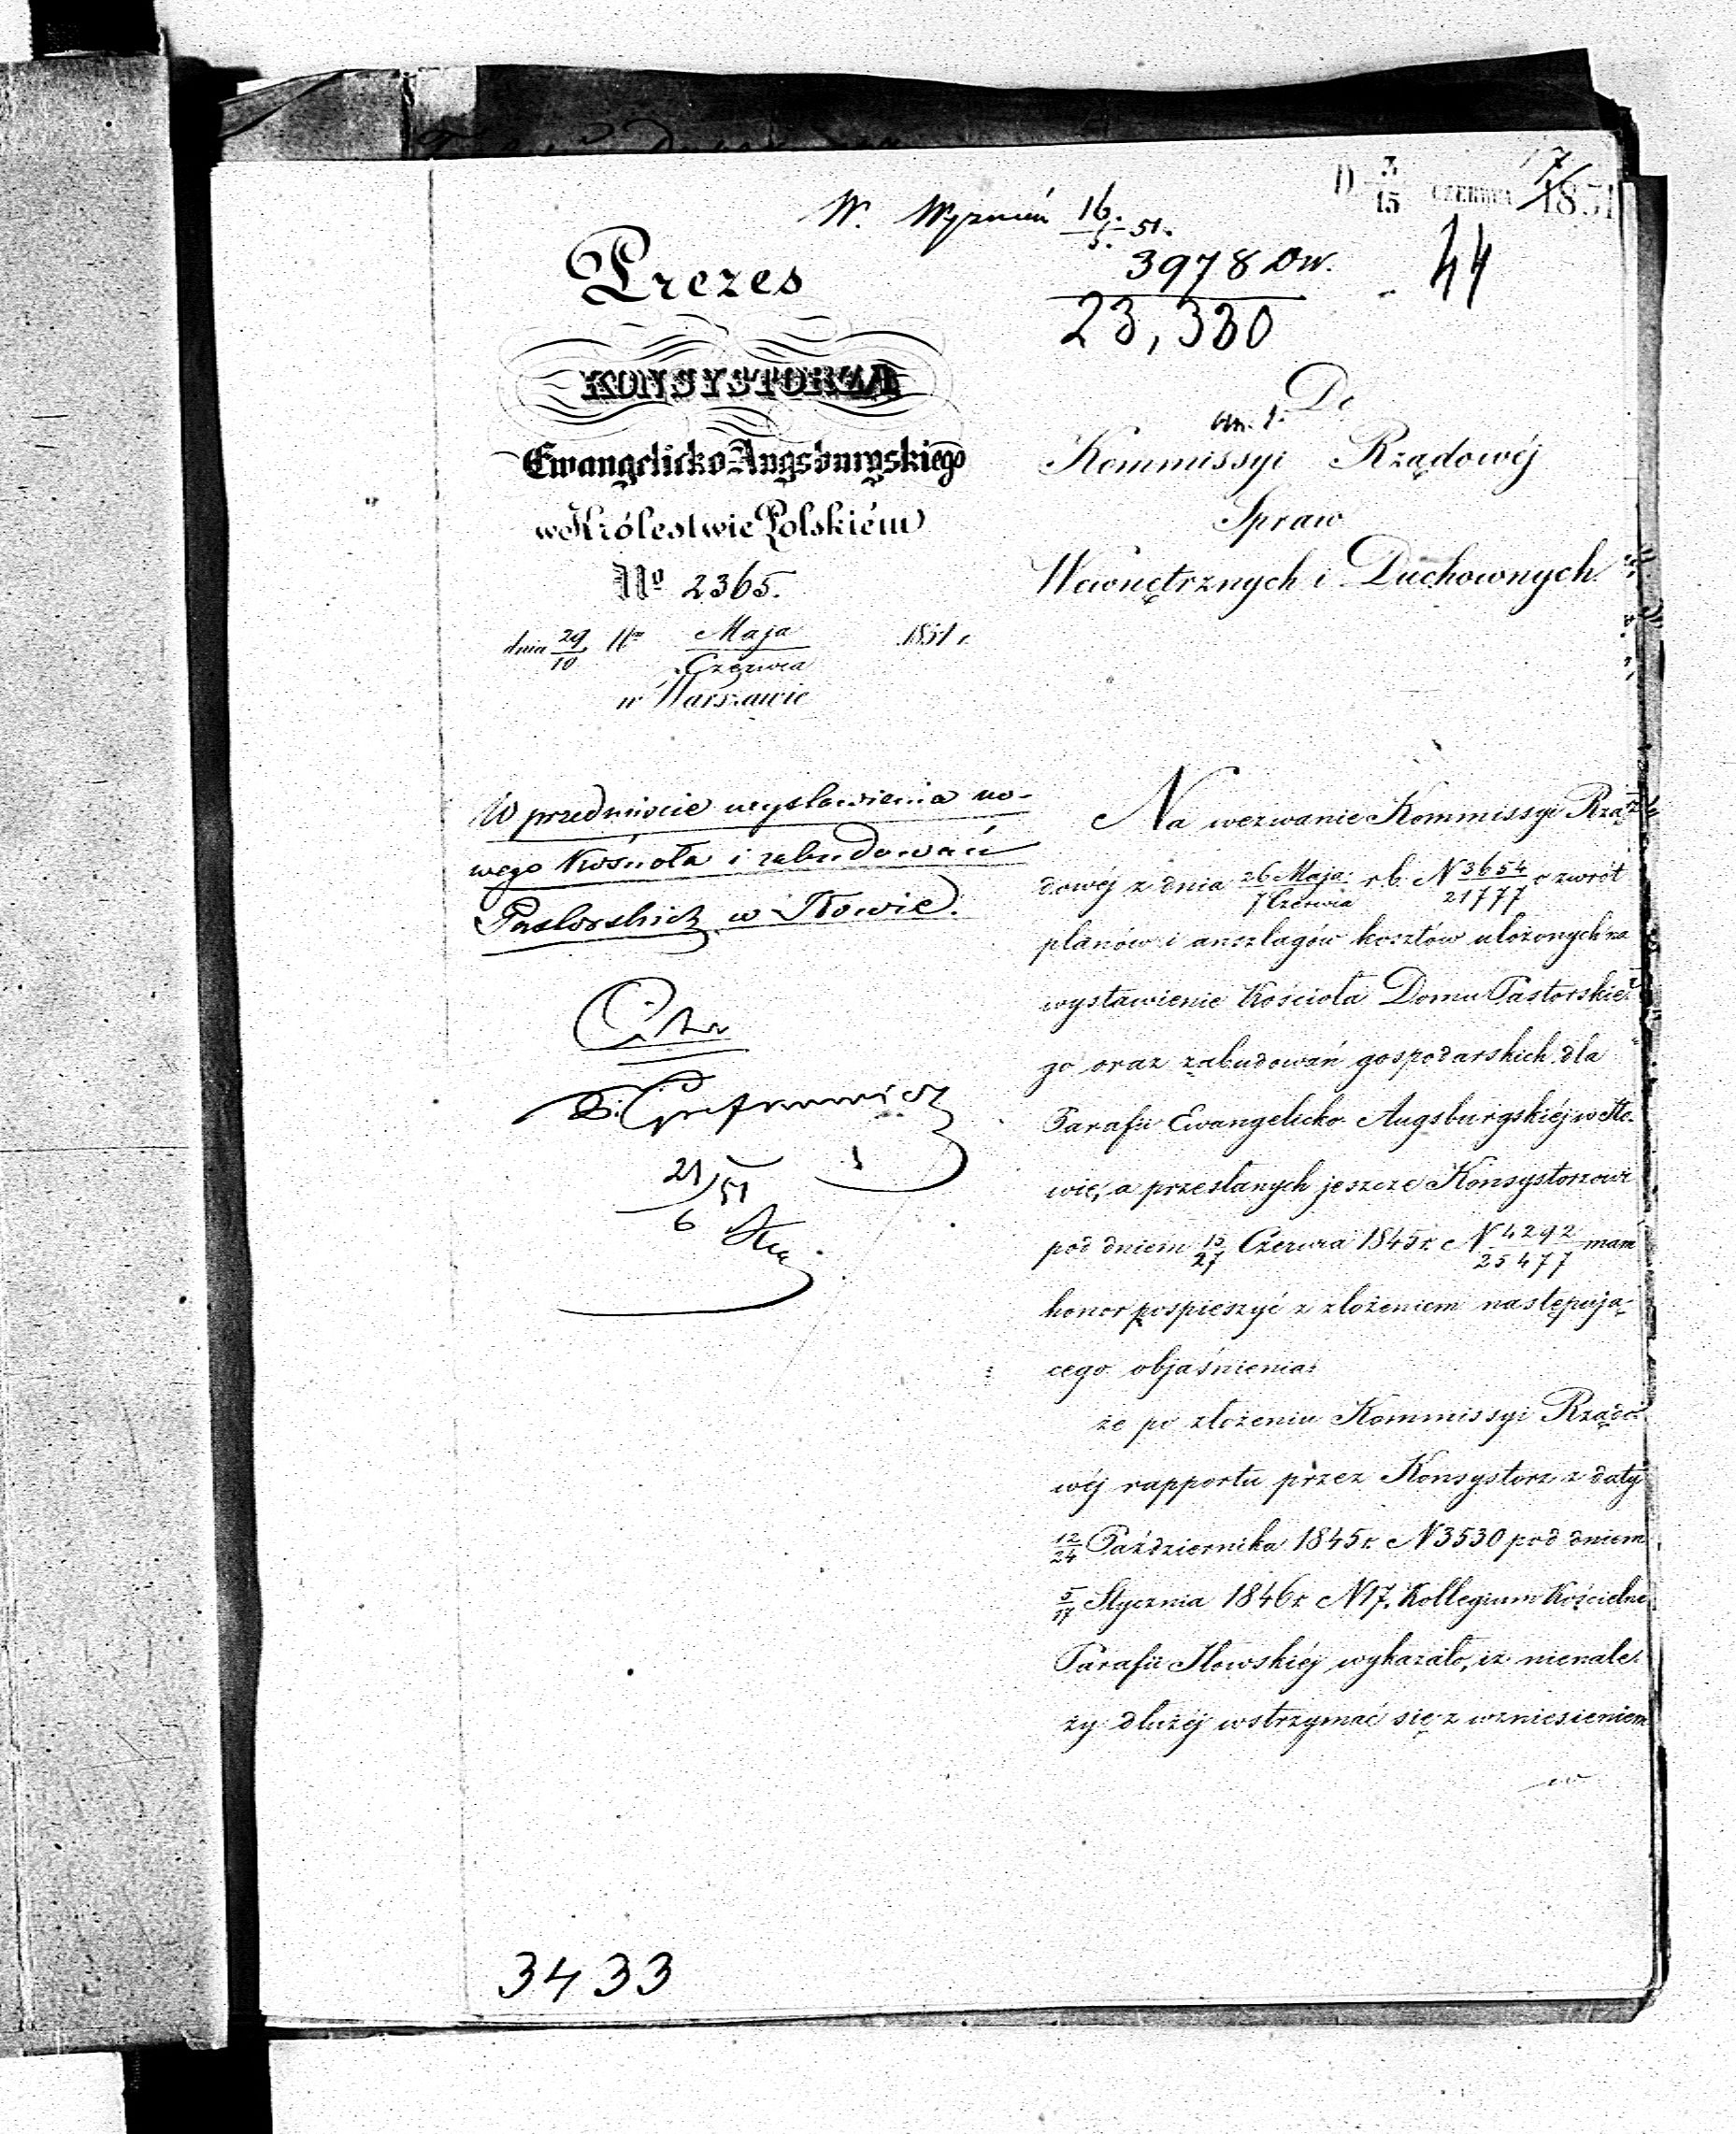 D. 3/15 CZERWCA 1851
W. Wyznań 16./6. 51.
3978 DW.
23,330
44
Prezes
KONSYSTORZA
Ewangelicko-Augsburgskiego
w Królestwie Polskiém
No 2365.
dnia 29/10 Maja/Czerwca 1851 r.
w Warszawie
Do
Kommissyi Rządowéj
Spraw
Wewnętrznych i Duchownych
W przedmiocie wystawienia no-
wego Kościoła i zabudowań
Pastorskich w Iłowie.
21/6 51
Na wezwanie Kommissyi Rzą-
dowéj z dnia 26 Maja/7 Czerwca r.b. N 3654/21777 o zwrót
planów i anszlagów kosztów ułożonych na
wystawienie Kościoła Domu Pastorskie-
go oraz zabudowań gospodarskich dla
Parafii Ewangelicko Augsburgskiéj w Iło-
wie, a przesłanych jeszcze Konsystorzowi
pod dniem 15/27 Czerwca 1845 r. N 4292/25477 mam
honor pospieszyć z złożeniem następują-
cego objaśnienia:
że po złożeniu Kommissyi Rządo-
wéj rapportu przez Konsystorz z daty
12/24 Października 1845 r. N 3530 pod dniem
5/17 Stycznia 1846 r. N 17. Kollegium Kościelne
Parafii Iłowskiéj wykazało, iż nienale-
ży dłużéj wstrzymać się z wzniesieniem
3433